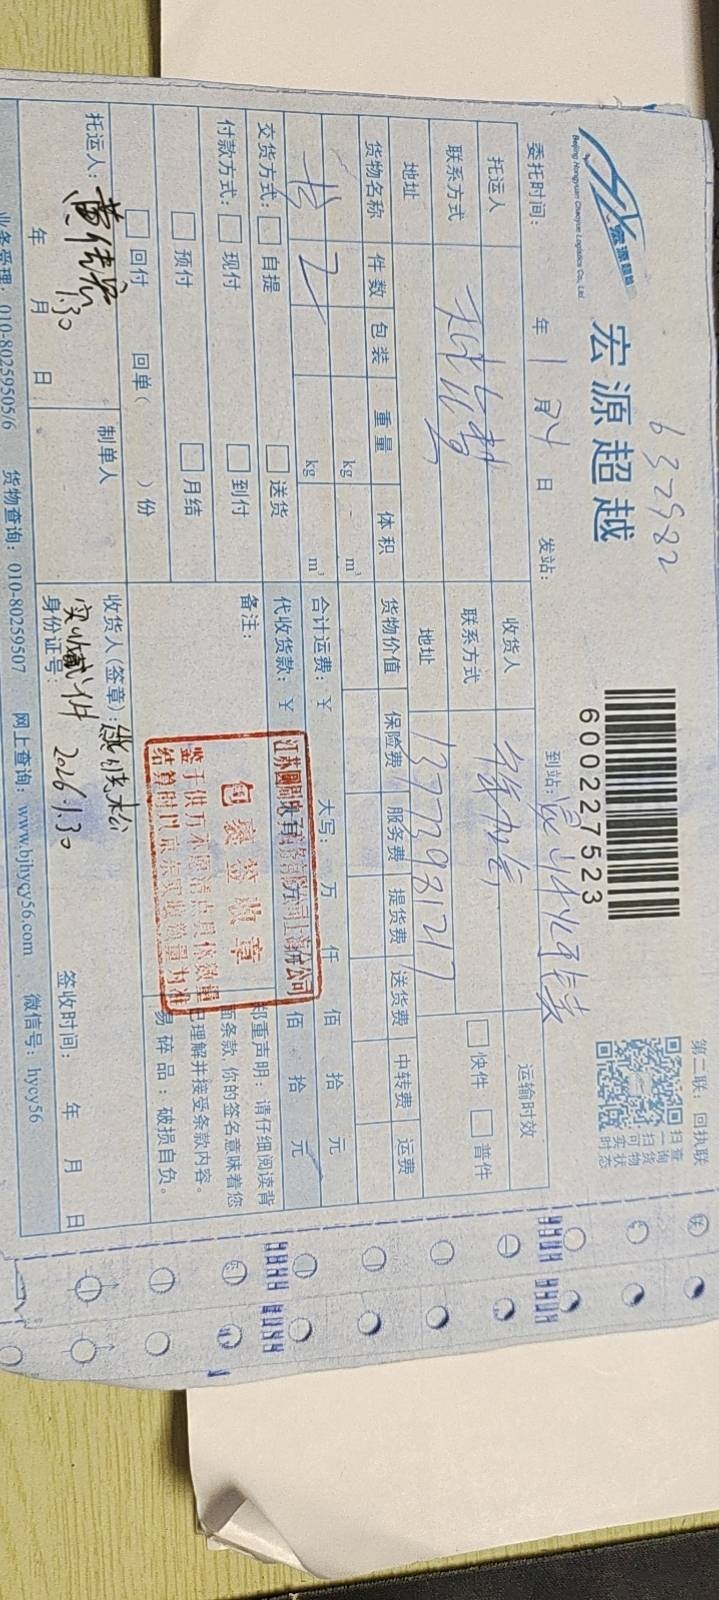 632982
宏源超越
宏源超越
Beijing Hongyuan Chaoyue Logistics Co., Ltd.
600227523
第二联：回执联
扫一扫
查询货物
可实时状态
委托时间： 年 1 月 24 日 发站： 到站：
托运人 收货人 运输时效
联系方式 联系方式 快件 普件
地址 地址 13773981217
货物名称 件数 包装 重量 体积 货物价值 保险费 服务费 提货费 送货费 中转费 运费
kg m³
2 kg m³ 合计运费：￥ 大写： 万 仟 佰 拾 元
交货方式： 自提 送货 代收货款：￥ 佰 拾 元
付款方式： 现付 到付 备注：
预付 月结
回付 回单（ ）份
包裹签收章
鉴于供方不愿清点具体数量
结算时以京东实收数量为准
郑重声明：请仔细阅读背
面条款 你的签名意味着您
已理解并接受条款内容。
易碎品：破损自负。
托运人： 黄佳宏 1.30
年 月 日
制单人
收货人（签章）：
身份证号： 实收贰件 2026.1.30
签收时间： 年 月 日
业务受理：010-80259505/6 货物查询：010-80259507 网上查询：www.bjhycy56.com 微信号：hycy56